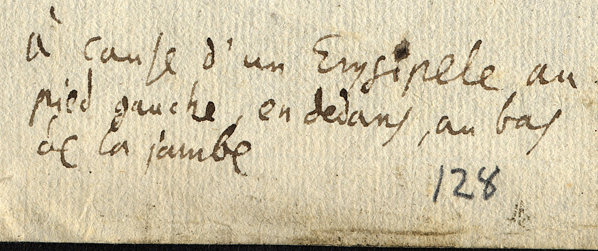 à cause d'un Erysipele, au
pied gauche, en dedans, au bas
de la jambe
128